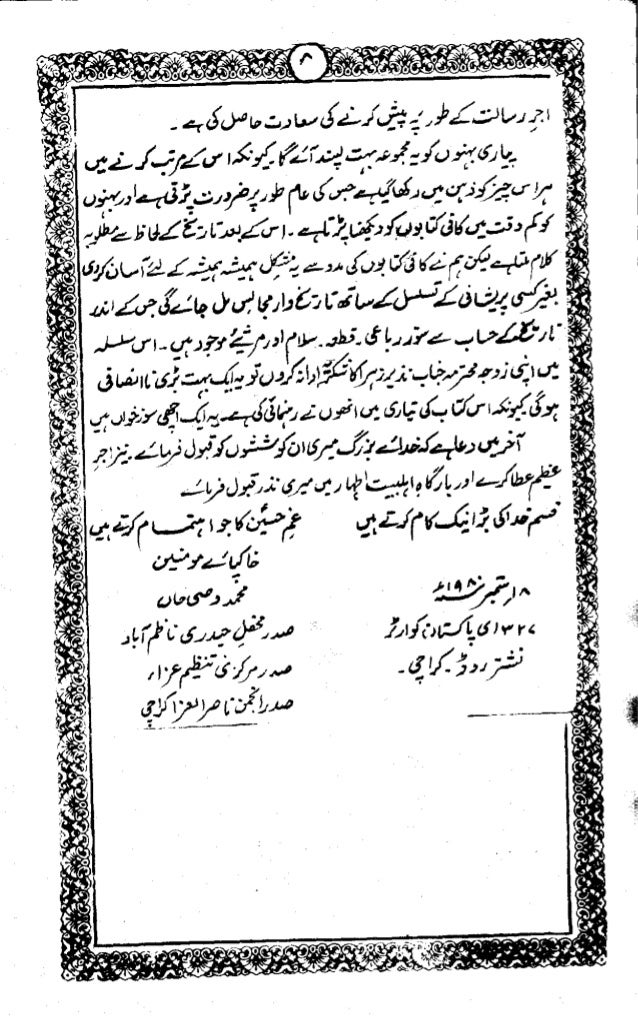 ۸
اجرِ رسالت کے طور پہ پیش کرنے کی سعادت حاصل کی ہے۔
ہماری بہنوں کو یہ مجموعہ بہت پسند آئے گا۔ کیونکہ اس کے مرتب کرنے میں
ہر اس چیز کو ذہن میں رکھا گیا ہے جس کی عام طور پر ضرورت پڑتی ہے اور بہنوں
کو کم وقت میں کافی کتابوں کو دیکھنا پڑتا ہے۔ اس کے بعد تاریخ کے لحاظ سے مطلوبہ
کلام ملتا ہے لیکن ہم نے کافی کتابوں کی مدد سے یہ مشکل ہمیشہ ہمیشہ کے لئے آسان کردی
بغیر کسی پریشانی کے تسلسل کے ساتھ تاریخ وار مجالس مل جائے گی جس کے اندر
تاریخ کے حساب سے سوز رباعی۔ قطعہ۔ سلام اور مرثیے موجود ہیں۔ اس سلسلہ
میں اپنی زوجہ محترمہ جناب نذیر زہرا کا شکریہ ادا نہ کروں تو یہ ایک بہت بڑی نا انصافی
ہوگی کیونکہ اس کتاب کی تیاری میں انھوں نے رہنمائی کی ہے۔ یہ ایک اچھی سوزخواں ہیں
آخر میں دعا ہے کہ خدائے بزرگ میری ان کوششوں کو قبول فرمائے نیز اجرِ
عظیم عطا کرے اور بارگاہِ اہلبیت اطہار میں میری نذر قبول فرمائے
قسم خدا کی بڑا نیک کام کرتے ہیں غمِ حسینؑ کا جو اہتمام کرتے ہیں
خاکپائے مومنین
۱۸ ستمبر ۱۹۸۰ء محمد وصی خاں
۳۲۷ ای پاکستان کوارٹر صدر محفل حیدری ناظم آباد
نشتر روڈ۔ کراچی۔ صدر مرکزی تنظیم عزاء
صدر انجمن ناصر العزا کراچی